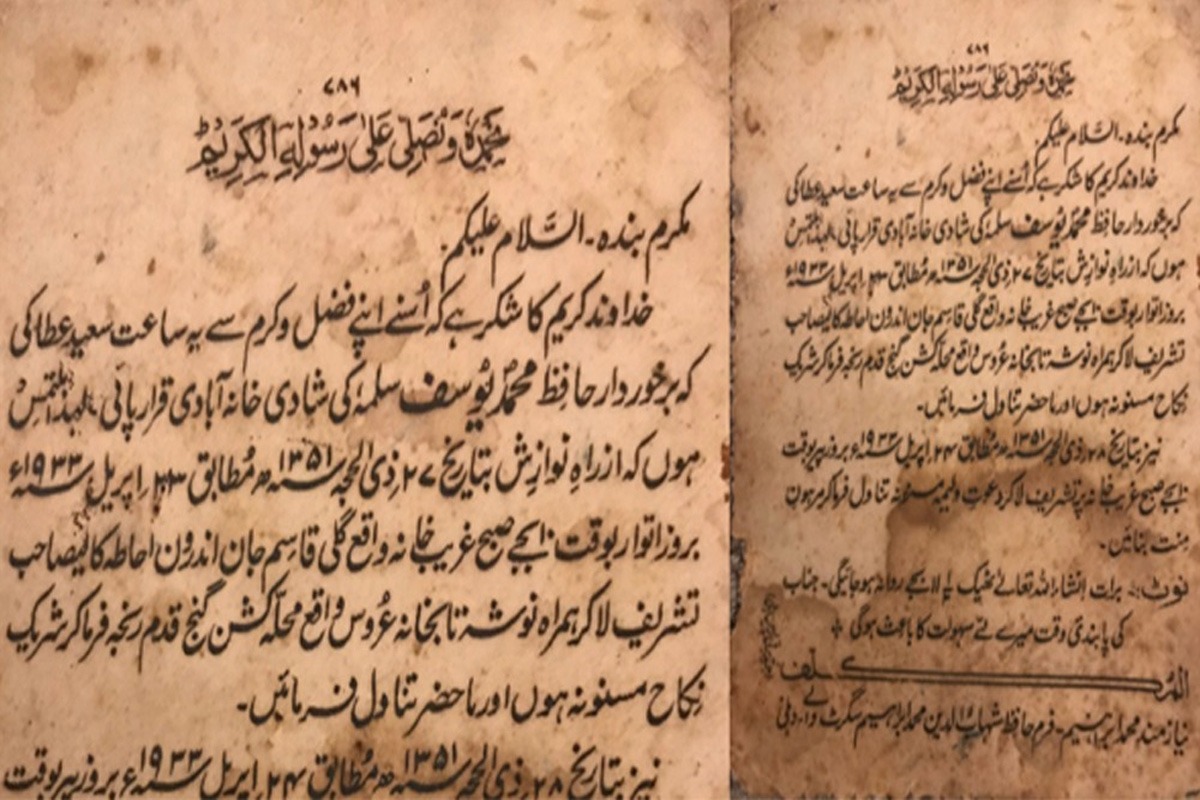 ۷۸۶
نحمدہٗ و نصلی علیٰ رسولہ الکریم
مکرم بندہ۔ السّلام علیکم۔
خداوند کریم کا شکر ہے کہ اُسنے اپنے فضل و کرم سے یہ ساعت سعید عطا کی
کہ برخوردار حافظ محمدؐ یُوسف سلمہٗ کی شادی خانہ آبادی قرار پائی لہذا ملتمس
ہوں کہ ازراہِ نوازش بتاریخ ۲۷؍ ذی الحجہ سنہ ۱۳۵۱ھ مُطابق ۲۳؍ اپریل سنہ ۱۹۳۳ء
بروز اتوار بوقت ۱۰ بجے صبح غریب خانہ واقع گلی قاسم جان اندرون احاطہ کالیصاحب
تشریف لا کر ہمراہ نوشہ تا بخانہ عُروس واقع محلّہ کشن گنج قدم رنجہ فرما کر شریک
نکاح مسنونہ ہوں اور ماحضر تناول فرمائیں۔
نیز بتاریخ ۲۸؍ ذی الحجہ سنہ ۱۳۵۱ھ مُطابق ۲۴؍ اپریل سنہ ۱۹۳۳ء بروز پیر بوقت
۷۸۶
نحمدہٗ و نصلی علیٰ رسولہ الکریم
مکرم بندہ۔ السّلام علیکم
خداوند کریم کا شکر ہے کہ اُسنے اپنے فضل و کرم سے یہ ساعت سعید عطا کی
کہ برخوردار حافظ محمدؐ یُوسف سلمہٗ کی شادی خانہ آبادی قرار پائی لہذا ملتمس
ہوں کہ ازراہِ نوازش بتاریخ ۲۷؍ ذی الحجہ سنہ ۱۳۵۱ھ مُطابق ۲۳؍ اپریل سنہ ۱۹۳۳ء
بروز اتوار بوقت ۱۰ بجے صبح غریب خانہ واقع گلی قاسم جان اندرون احاطہ کالیصاحب
تشریف لا کر ہمراہ نوشہ تا بخانہ عُروس واقع محلّہ کشن گنج قدم رنجہ فرما کر شریک
نکاح مسنونہ ہوں اور ماحضر تناول فرمائیں۔
نیز بتاریخ ۲۸؍ ذی الحجہ سنہ ۱۳۵۱ھ مُطابق ۲۴؍ اپریل سنہ ۱۹۳۳ء بروز پیر بوقت
۱۰ بجے صبح غریب خانہ پر تشریف لا کر دعوت ولیمہ مسنونہ تناول فرما کر مرہون
منت بنائیں۔
نوٹ:۔ برات انشاء اللہ تعالےٰ ٹھیک ۱۱ بجے روانہ ہو جائیگی۔ جناب
کی پابندئی وقت میرے لئے سہولت کا باعث ہو گی
المکلف
نیاز مند محمد ابراہیم۔ فرم حافظ شہاب الدین محمد ابراہیم سگرٹ والے۔ دہلی